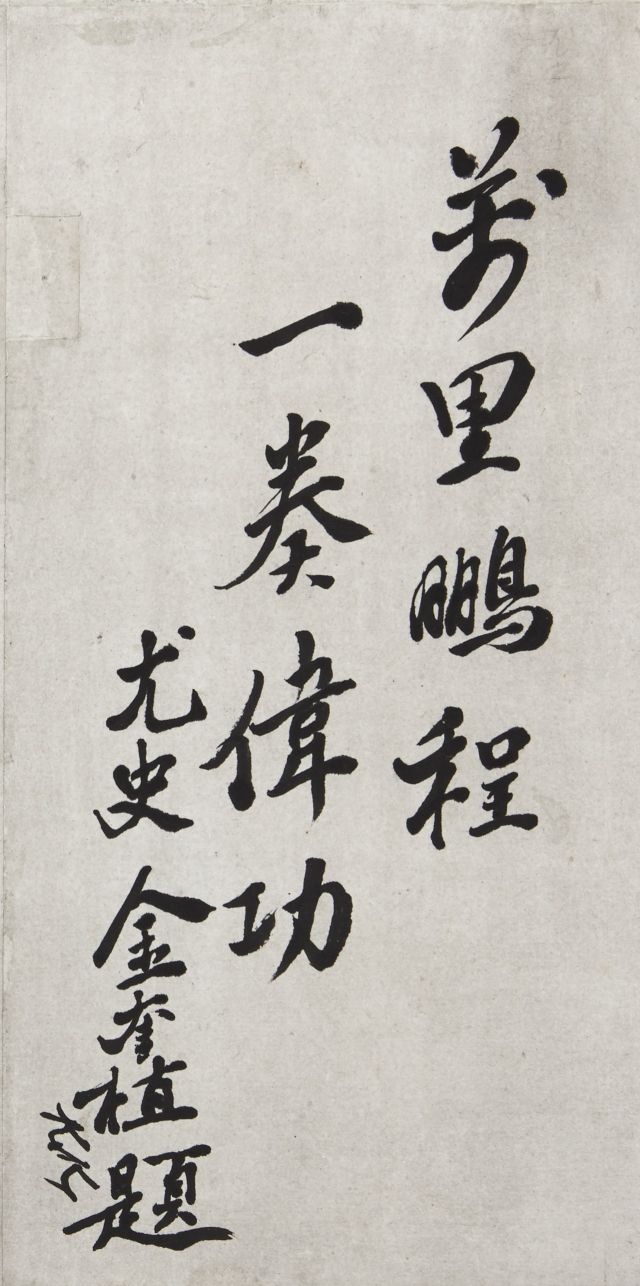 萬里鵬程
一奏偉功
尤史 金奎植題